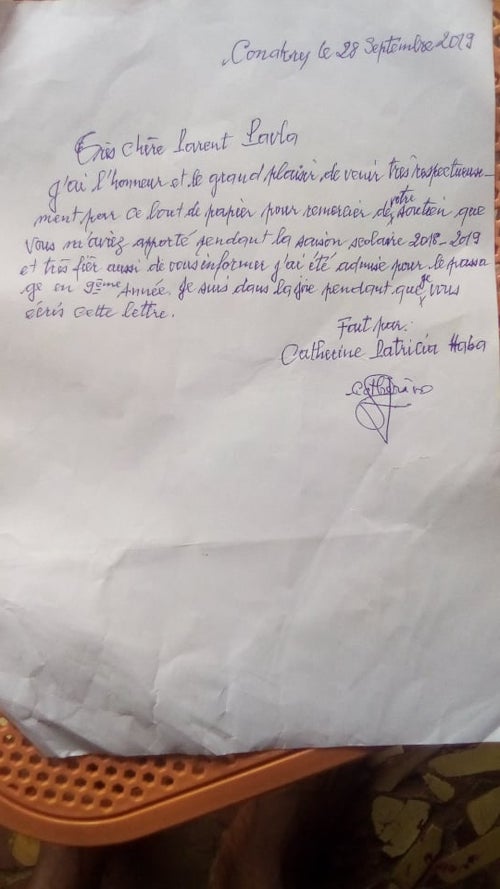 Conakry le 28 Septembre 2019
Très chère Parent Pavla
J'ai l'honneur et le grand plaisir de venir très respectueuse-
ment par ce bout de papier pour remercier de votre soutien que
vous m'aviez apporté pendant la saison scolaire 2018-2019
et très fier aussi de vous informer j'ai été admise pour le passa
ge en 9ème Année. Je suis dans la joie pendant que je vous
écris cette lettre.
Fait par:
Catherine Patricia Haba
Catherine